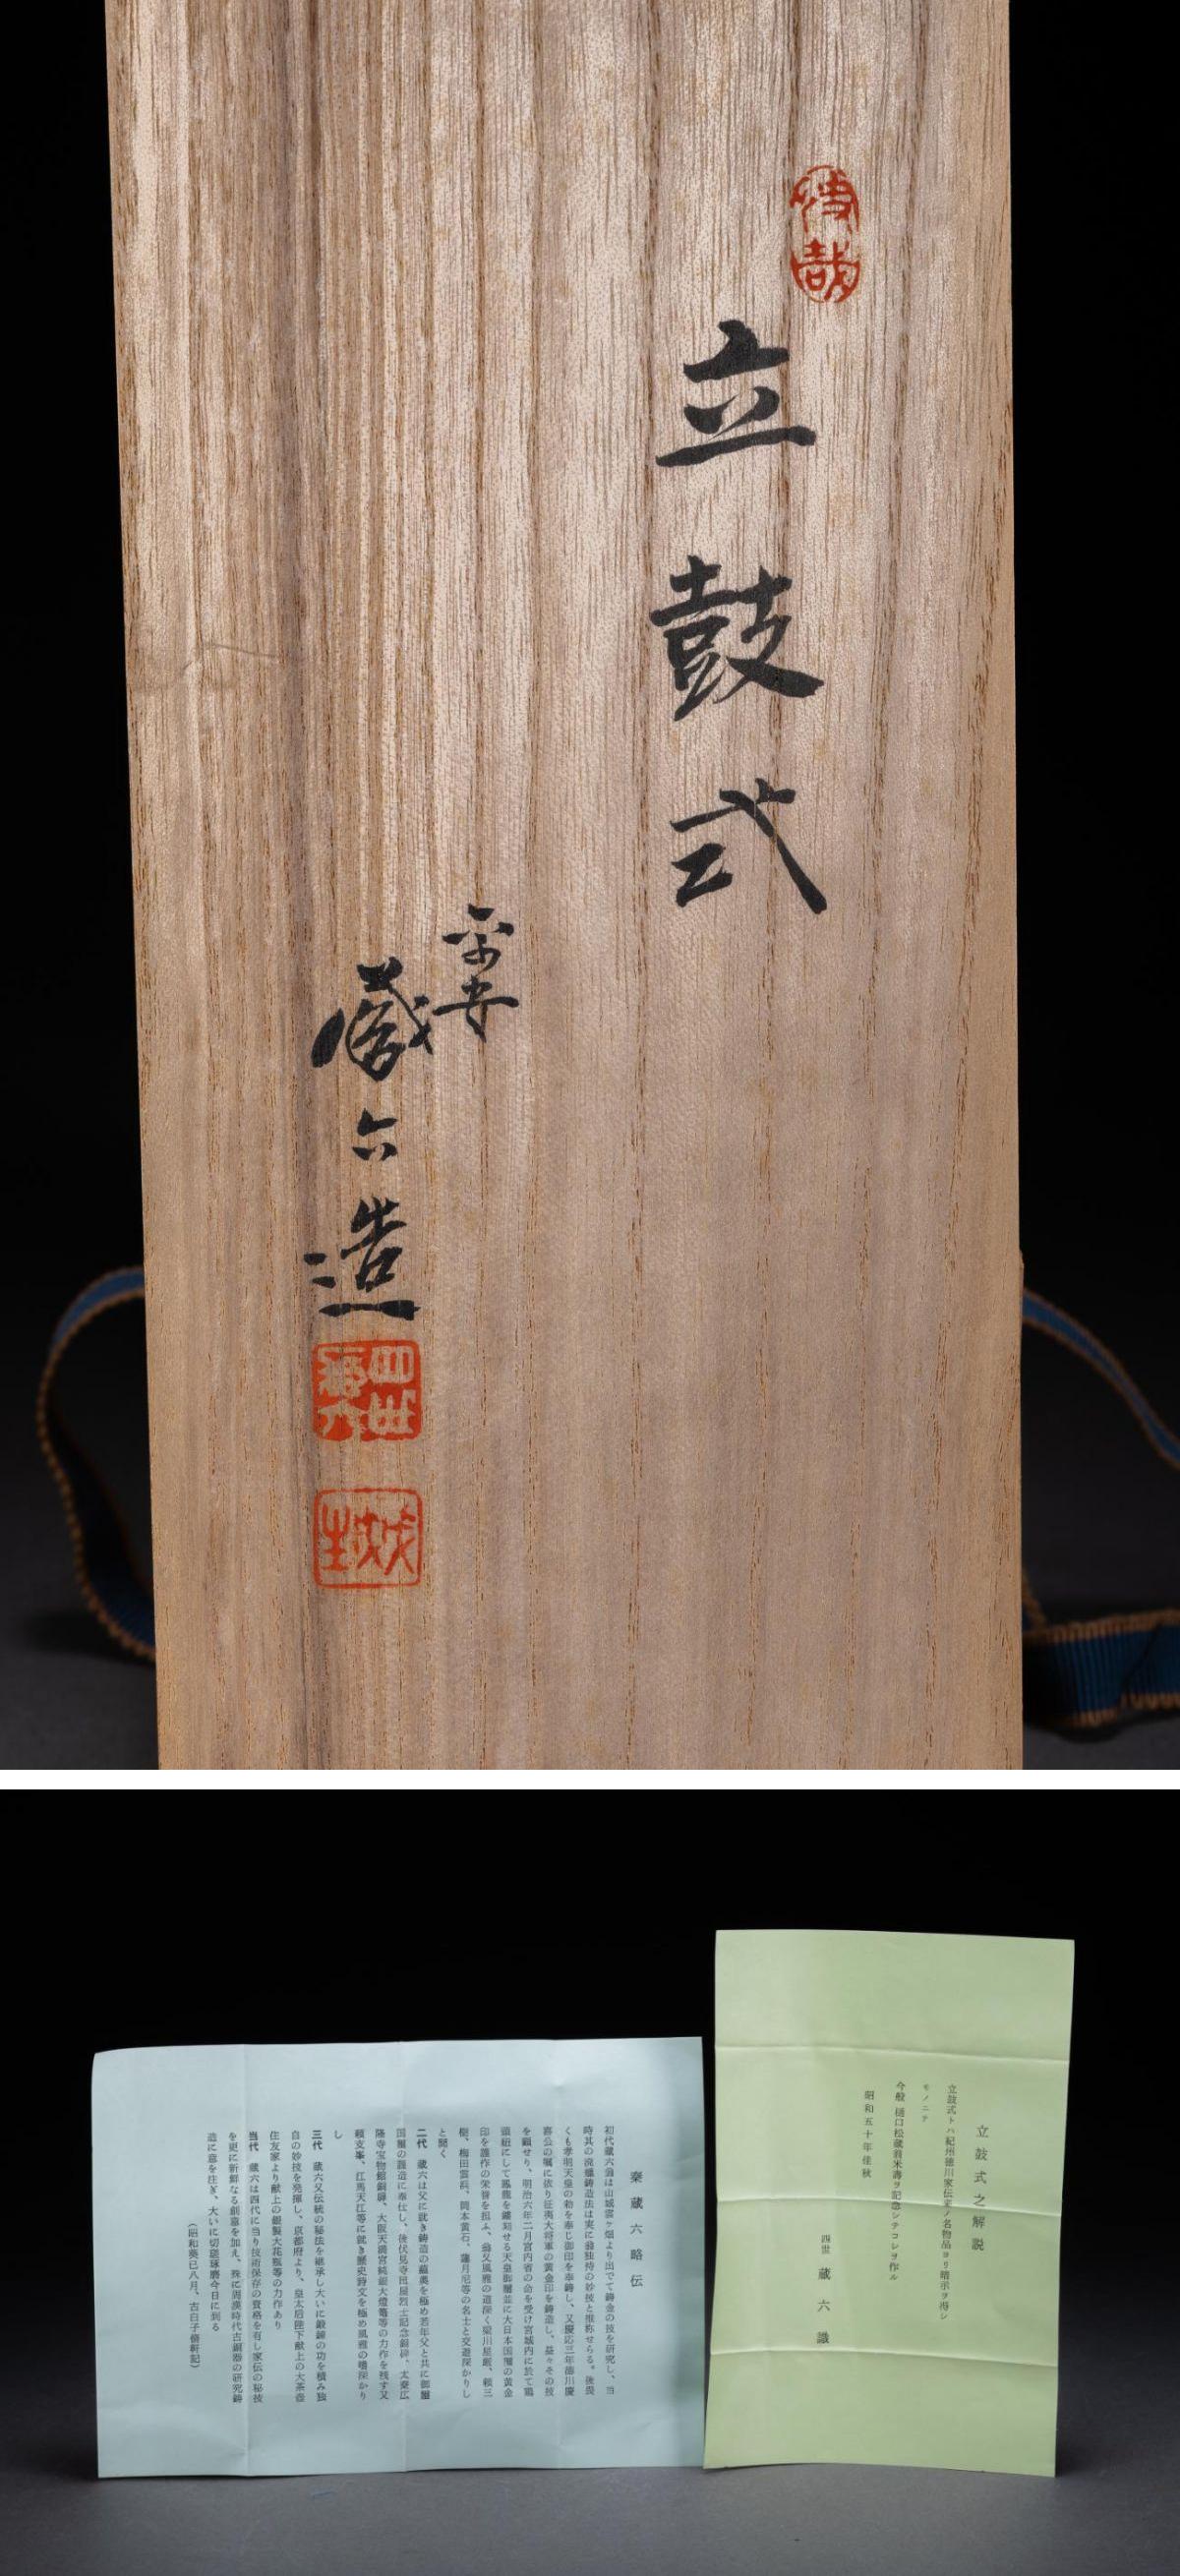 立鼓式
平安
蔵六造
四世蔵六
立鼓式之解説
立鼓式トハ紀州徳川家伝来ノ名物品ヨリ暗示ヲ得シ
モノニテ
今般 樋口松蔵翁米壽ヲ記念シテコレヲ作ル
昭和五十年佳秋
四世 蔵六 識
秦蔵六略伝
初代蔵六翁は山城雲ヶ畑より出でて鋳金の技を研究し、当
時其の洸蠟鋳造法は実に翁独特の妙技と推称せらる。後畏
くも孝明天皇の勅を奉じ御印を奉鋳し、又慶応三年徳川慶
喜公の嘱に依り征夷大将軍の黄金印を鋳造し、益々その技
を顕せり、明治六年二月宮内省の命を受け宮城内に於て
頭紐にして鳳龍を鏤刻せる天皇御璽並に大日本国璽の黄金
印を謹作の栄誉を担ふ、翁又風雅の道深く梁川星巌、頼三
樹、梅田雲浜、岡本黄石、蓮月尼等の名士と交遊深かりし
と聞く
二代 蔵六は父に就き鋳造の蘊奥を極め若年父と共に御璽
国璽の謹造に奉仕し、後伏見寺田屋烈士記念銅碑、太秦広
隆寺宝物館銅扉、大阪天満宮純銀大燈籠等の力作を残す又
頼支峯、江馬天江等に就き歴史詩文を極め風雅の嗜深かり
し
三代 蔵六父伝統の秘法を継承し大いに鍛錬の功を積み独
自の妙技を発揮し、京都府より、皇太后陛下献上の大茶壺
住友家より献上の銀製大花瓶等の力作あり
当代 蔵六は四代に当り技術保存の資格を有し家伝の秘技
を更に新鮮なる創意を加え、殊に周漢時代古銅器の研究鋳
造に意を注ぎ、大いに切磋琢磨今日に到る
(昭和癸巳八月、古白子倚軒記)